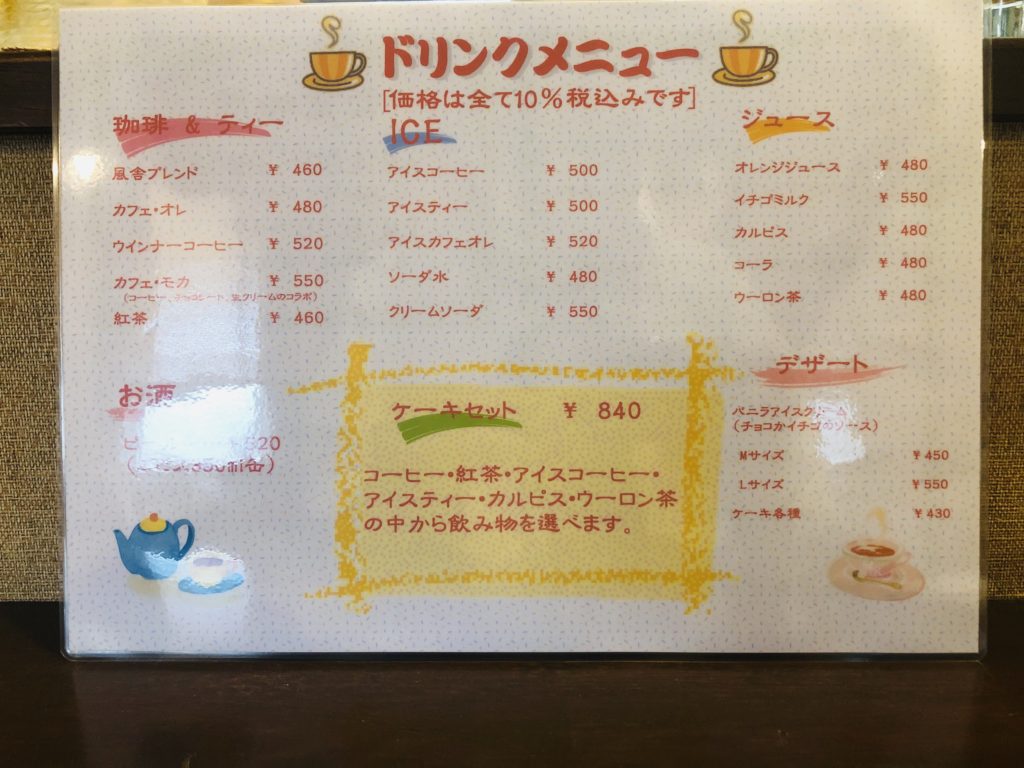 ドリンクメニュー
[価格は全て10%税込みです]
珈琲 & ティー
風舎ブレンド ¥ 460
カフェ・オレ ¥ 480
ウインナーコーヒー ¥ 520
カフェ・モカ ¥ 550
(コーヒー、チョコレート、生クリームのコラボ)
紅茶 ¥ 460
ICE
アイスコーヒー ¥ 500
アイスティー ¥ 500
アイスカフェオレ ¥ 520
ソーダ水 ¥ 480
クリームソーダ ¥ 550
ジュース
オレンジジュース ¥ 480
イチゴミルク ¥ 550
カルピス ¥ 480
コーラ ¥ 480
ウーロン茶 ¥ 480
お酒
520
ケーキセット ¥ 840
コーヒー・紅茶・アイスコーヒー・
アイスティー・カルピス・ウーロン茶
の中から飲み物を選べます。
デザート
バニラアイスクリーム
(チョコかイチゴのソース)
Mサイズ ¥450
Lサイズ ¥550
ケーキ各種 ¥430